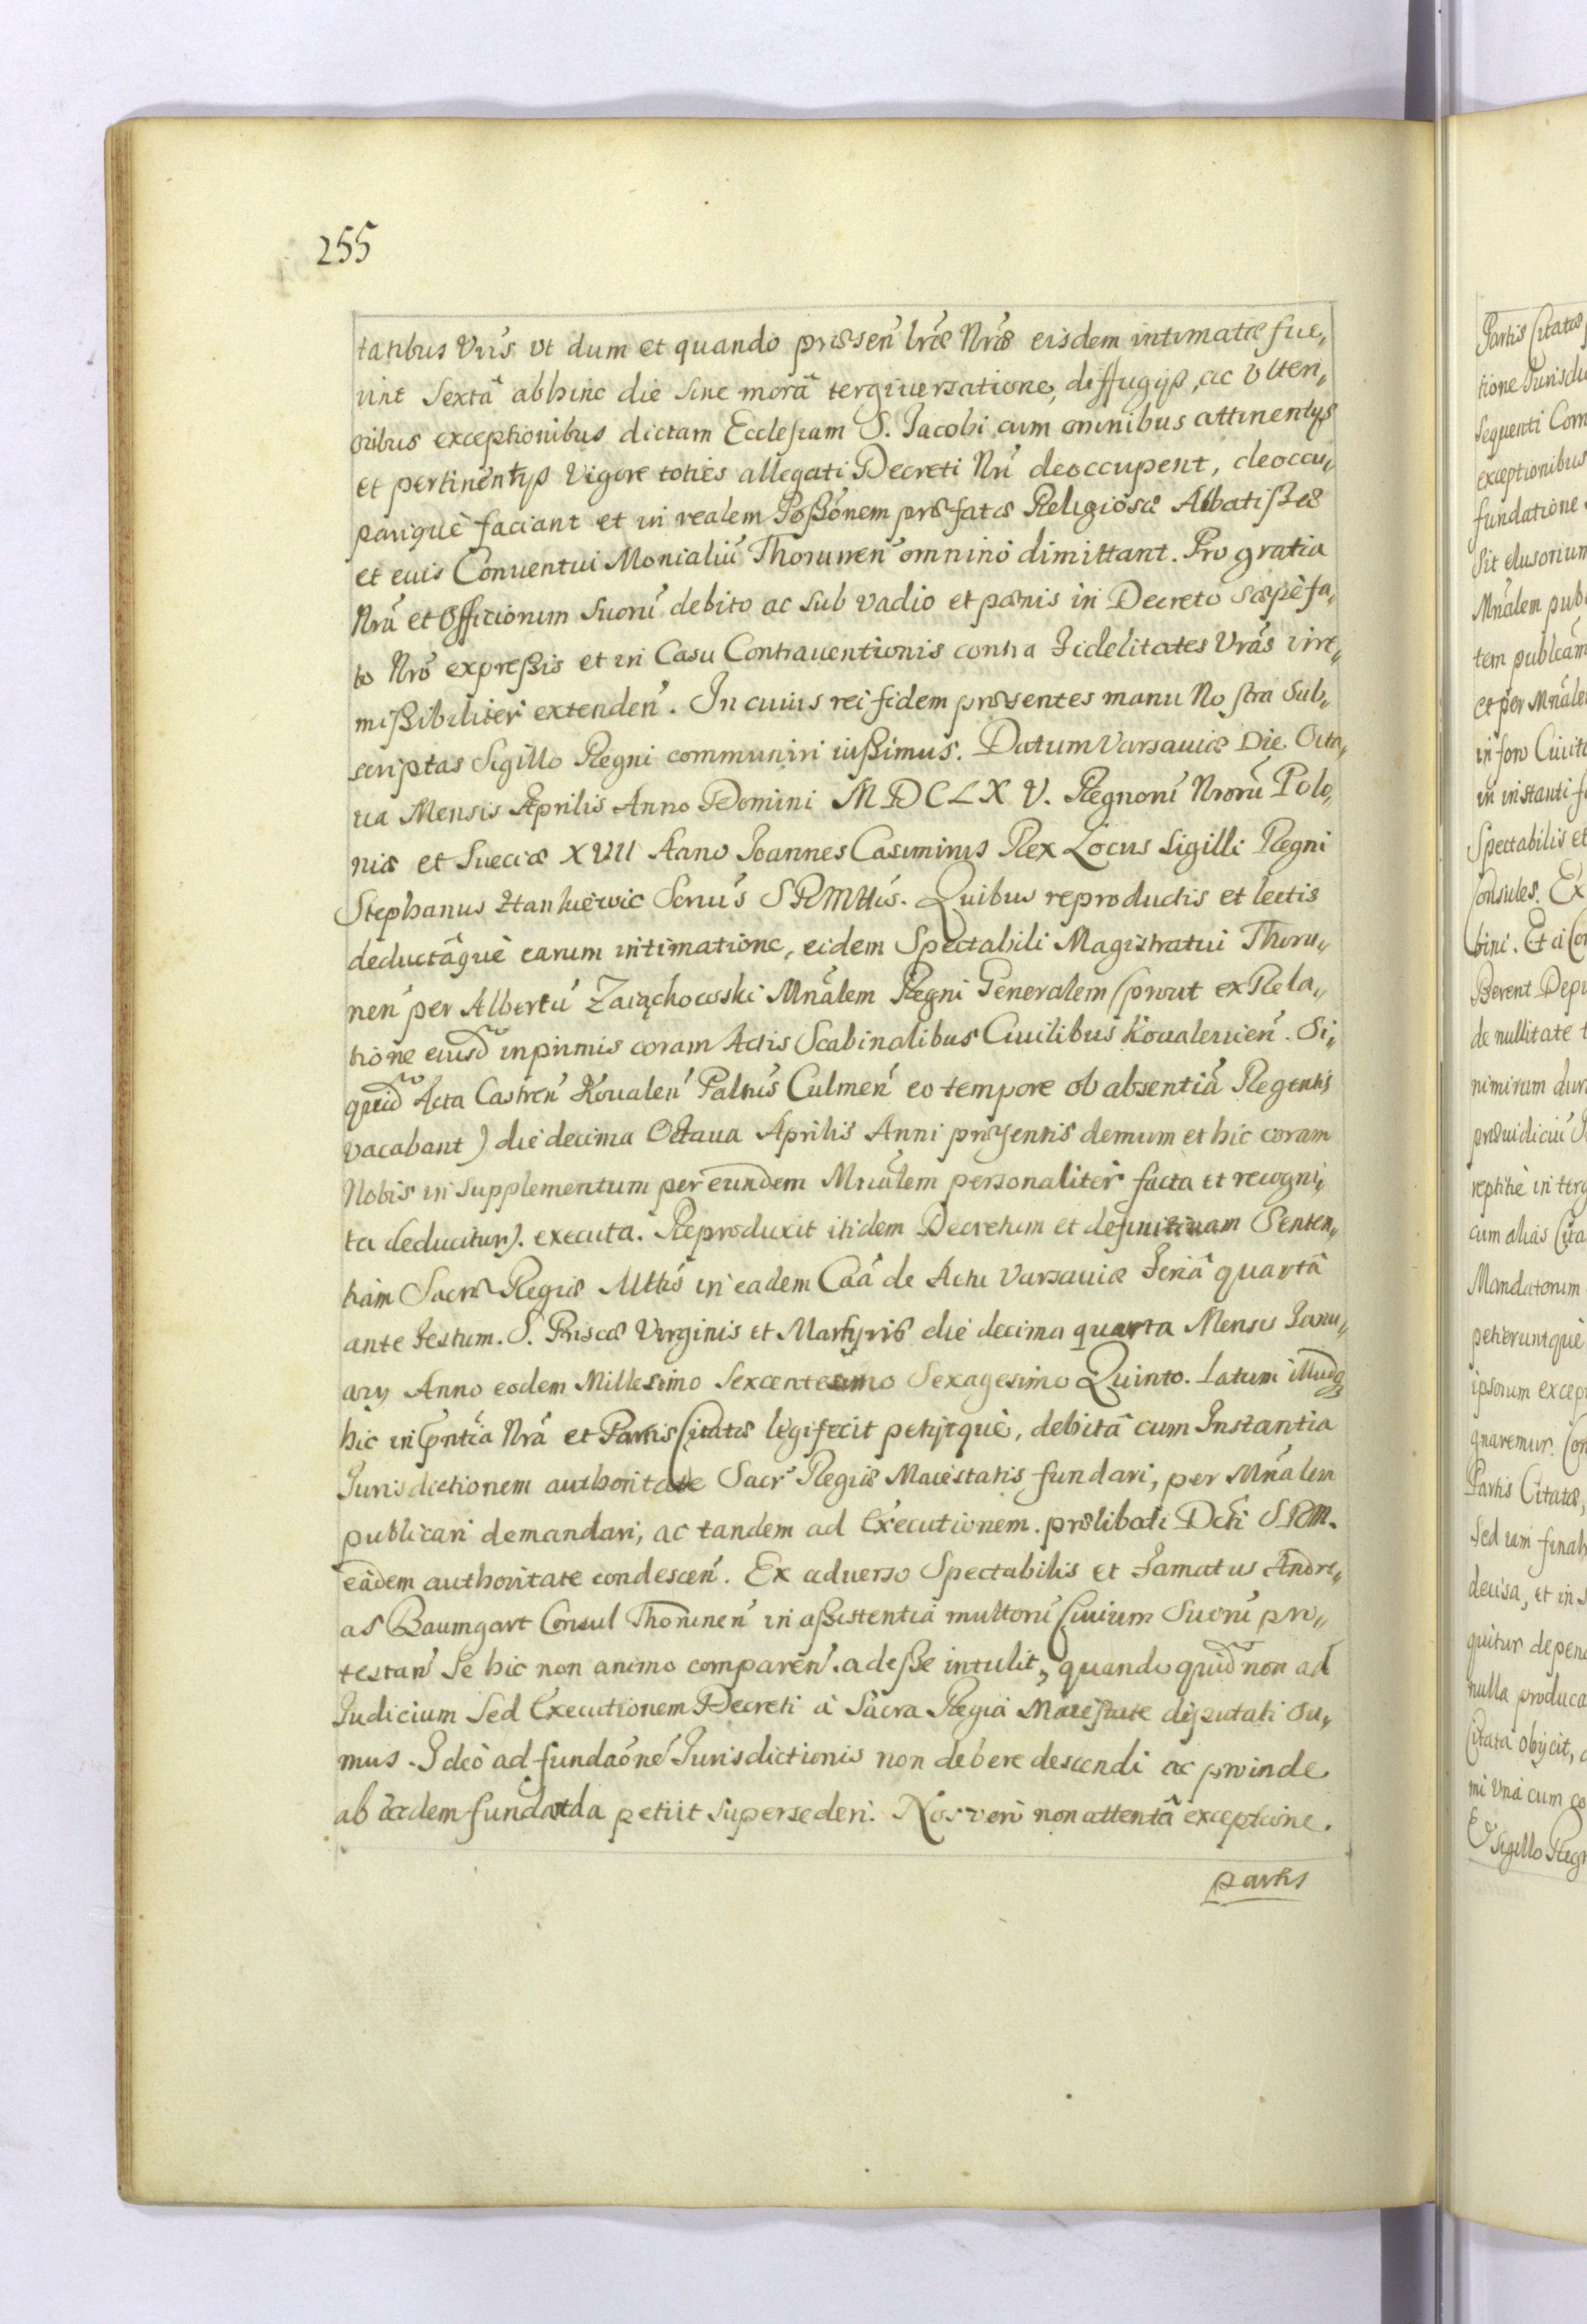 255
tatibus Vris vt dum et quando præsen lræ Nræ eisdem intimatæ fue,,
rint Sextâ abhinc die sine morâ tergiuersatione, diffugijs, ac Vlteri,,
oribus exceptionibus dictam Ecclesiam S. Jacobi cum omnibus attinentijs
et pertinentijs Vigore toties allegati Decreti Nri deoccupent, deoccu,,
parique faciant et in realem Poßonem præfatæ Religiosæ Abatissæ
et euis Conuentui Monialiū Thorunen omnino dimittant. Pro gratia
Nrâ et Officiorum Suorū debito ac Sub vadio et pænis in Decreto sæpè fa,,
to Nrô expreßis et in Casu Contrauentionis contra Fidelitates Vrâs irre,,
mißibiliter extenden. In cuius rei fidem præsentes manu Nostra Sub,,
scriptas Sigillo Regni communiri iußimus. Datum Varsauiæ Die Octa,,
ua Mensis Aprilis Anno Domini MDCLXV. Regnorū Nrorū Polo,,
niæ et Sueciæ XVII Anno Joannes Casimirus Rex Locus Sigilli Regni
Stephanus Hankiewic Scrius SRMttis. Quibus reproductis et lectis
deductâque earum intimatione, eidem Spectabili Magistratui Thoru,,
nen per Albertū Zaiąchowski Mnâlem Regni Generalem (prout ex Rela,,
tione eiusd inprimis coram Actis Scabinalibus Ciuilibus Koualeuien. Si,,
quid Acta Castren Koualen Paltus Culmen eo tempore ob absentiā Regentis
vacabant) die decima Octaua Aprilis Anni præsentis demum et hic coram
Nobis in supplementum per eundem Mnâlem personaliter facta et recogni,,
ta deducitur). executa. Reproduxit itidem Decretum et definitiuam Senten,,
tiam Sacræ Regiæ Mttis in eadem Caâ de Actu Varsauiæ Feriâ quartâ
ante Festum. S. Priscæ Virginis et Martyris die decima quarta Mensis Janu,,
arij Anno eodem Millesimo Sexcentesimo Sexagesimo Quinto. Latum illudq
hic in Pntia Nrâ et Partis Citatæ legi fecit petijtque, debitâ cum Instantia
Jurisdictionem authoritate Sacr Regiæ Maiestatis fundari, per Mnâlem
publicari demandari, ac tandem ad Executionem. prælibati Dcti SRM.
eâdem authoritate condescen. Ex aduerso Spectabilis et Famatus Andre,,
as Baumgart Consul Thorunen in aßistentia multorū Ciuium Suorū pro,,
testan Se hic non animo comparen. adeße intulit, quandoquid non ad
Judicium Sed Executionem Decreti à Sacra Regia Maiestate deputati Su,,
mus. Ideò ad fundaône Jurisdictionis non debere descendi ac proinde
ab eadem fundanda petiit Supersederi. Nos verò non attentâ exceptione.
partis